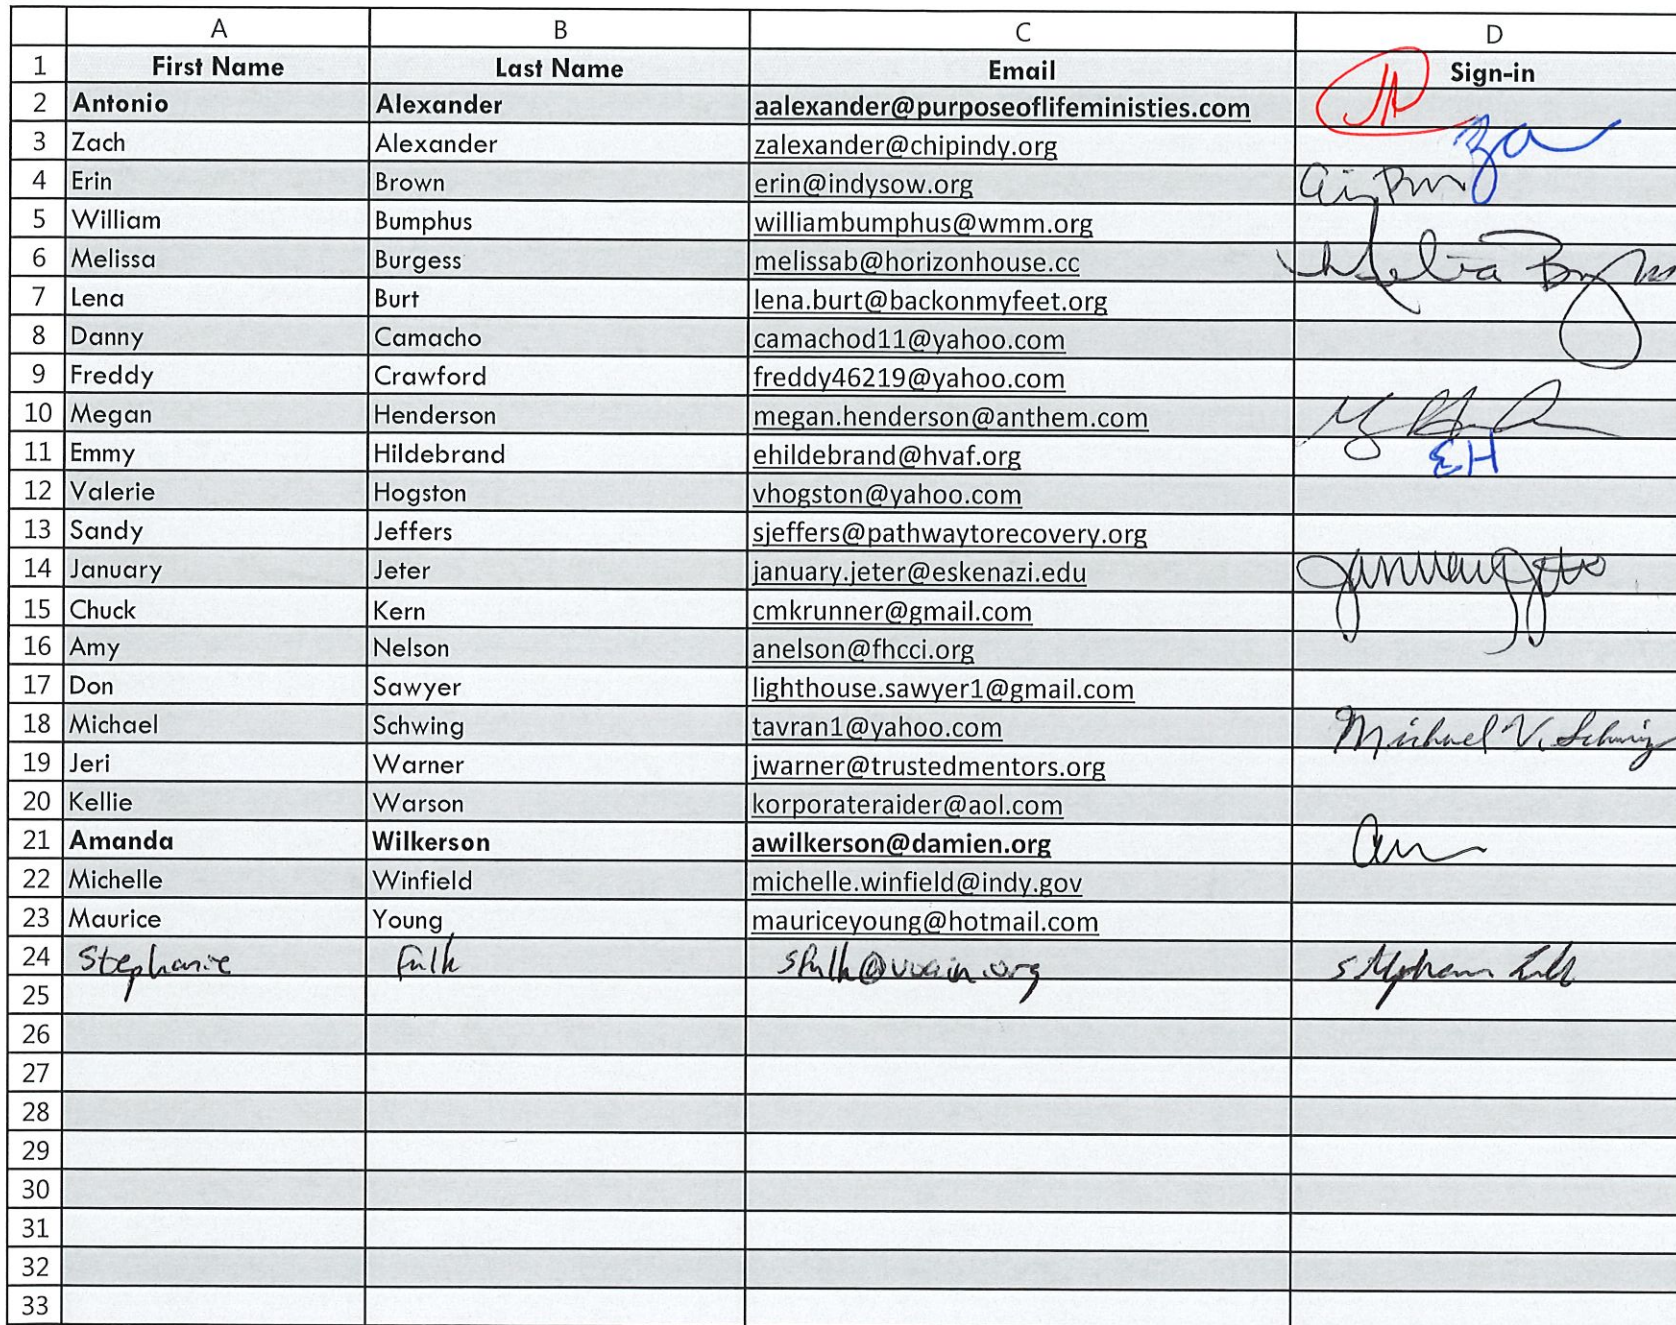 A B C D
1 First Name Last Name Email Sign-in
2 Antonio Alexander aalexander@purposeoflifeministies.com
3 Zach Alexander zalexander@chipindy.org za
4 Erin Brown erin@indysow.org
5 William Bumphus williambumphus@wmm.org
6 Melissa Burgess melissab@horizonhouse.cc
7 Lena Burt lena.burt@backonmyfeet.org
8 Danny Camacho camachod11@yahoo.com
9 Freddy Crawford freddy46219@yahoo.com
10 Megan Henderson megan.henderson@anthem.com
11 Emmy Hildebrand ehildebrand@hvaf.org EH
12 Valerie Hogston vhogston@yahoo.com
13 Sandy Jeffers sjeffers@pathwaytorecovery.org
14 January Jeter january.jeter@eskenazi.edu January Jeter
15 Chuck Kern cmkrunner@gmail.com
16 Amy Nelson anelson@fhcci.org
17 Don Sawyer lighthouse.sawyer1@gmail.com
18 Michael Schwing tavran1@yahoo.com Michael V. Schwing
19 Jeri Warner jwarner@trustedmentors.org
20 Kellie Warson korporateraider@aol.com
21 Amanda Wilkerson awilkerson@damien.org
22 Michelle Winfield michelle.winfield@indy.gov
23 Maurice Young mauriceyoung@hotmail.com
24 Stephanie Fulk sfulk@voain.org
25
26
27
28
29
30
31
32
33